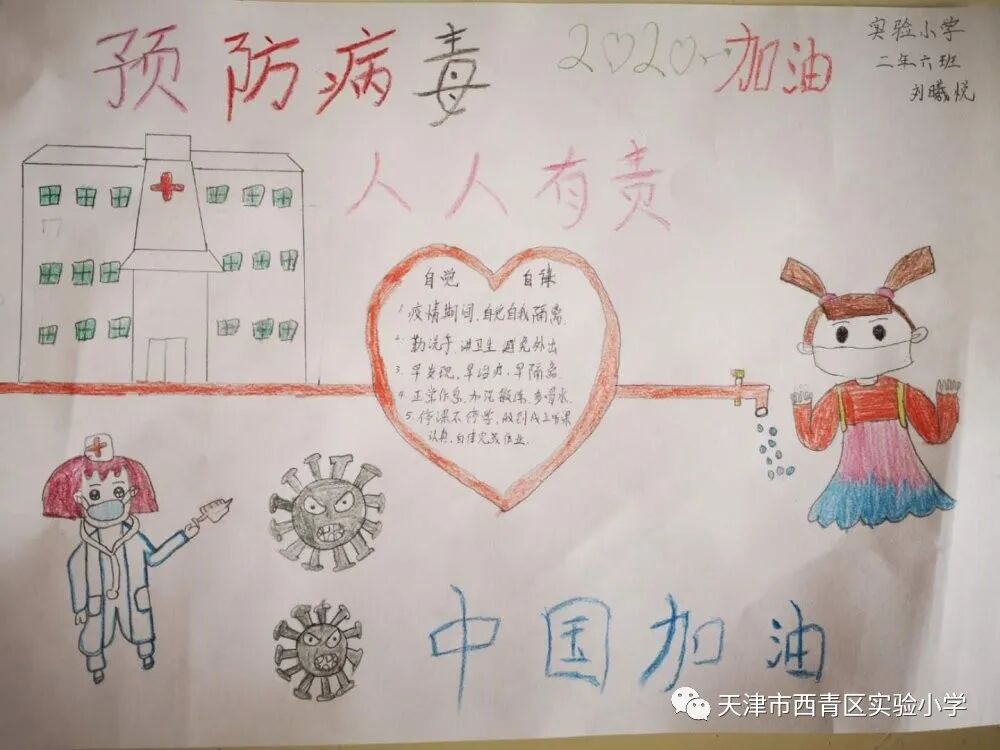 预防病毒
2020加油
实验小学
二年六班
刘曦悦
人人有责
自觉 自律
1.疫情期间,自觉自我隔离.
2.勤洗手 讲卫生 避免外出
3.早发现,早治疗,早隔离.
4.正常作息,加强锻炼,多喝水.
5.停课不停学,做到线上听课
认真,自律完成作业.
中国加油
天津市西青区实验小学